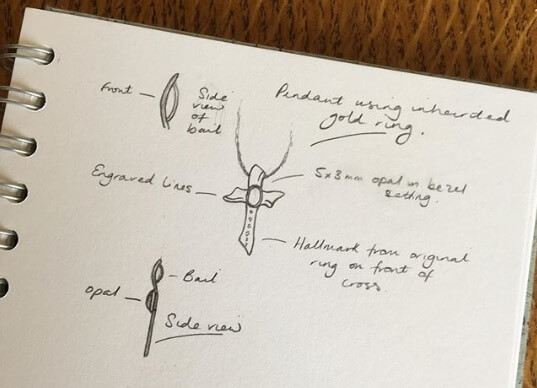 Pendant using inherited
gold ring.
Front
Side
view
of
bail
Engraved lines
5x3mm opal in bezel
setting.
Hallmark from original
ring on front of
cross.
Bail
Opal
Side view